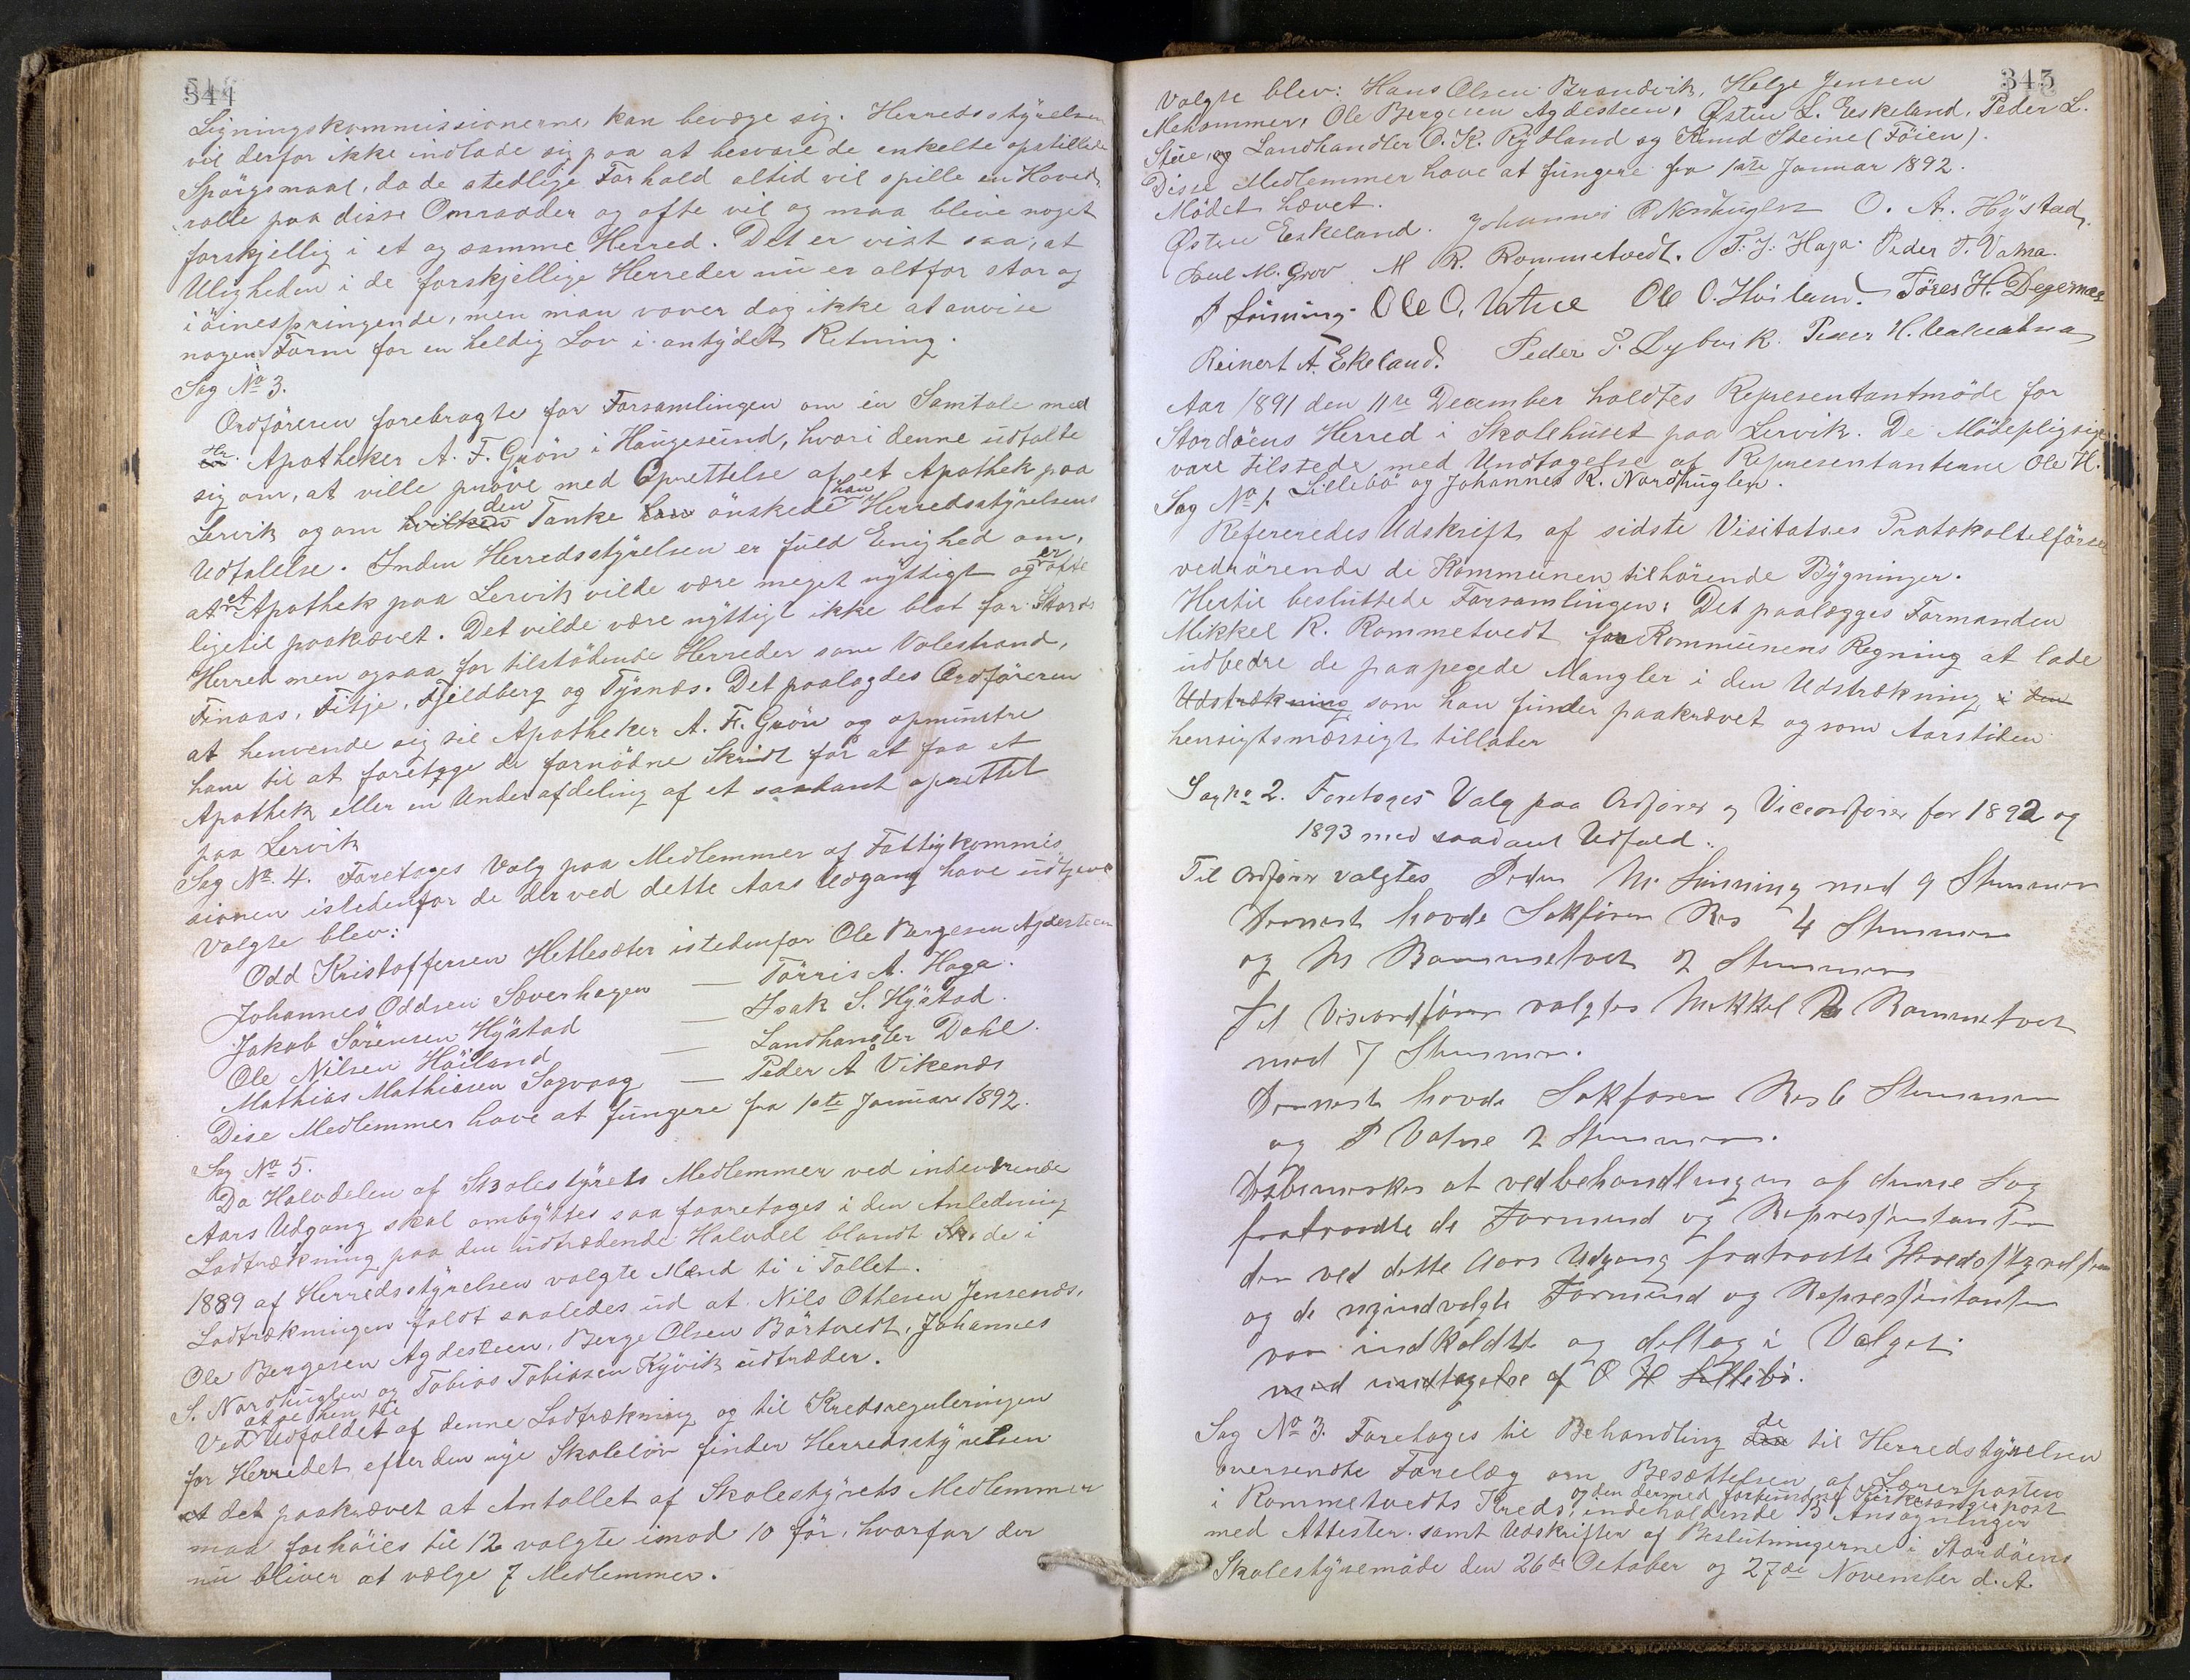 344
Ligningskommissionerne, kan bevæge sig. Herredsstyrelsen
vil derfor ikke indlade sig paa at besvare de enkelte opstillede
Spörgsmaal, da de stedlige Forhold altid vil spille en Hoved-
rolle paa disse Omraader og ofte vil og maa blive noget
forskjellig i et og samme Herred. Det er vist saa, at
Uligheden i de forskjellige Herreder nu er altfor stor og
iöinespringende, men man vover dog ikke at anvise
nogen Form for en heldig Lov i antydet Retning.
Sag No 3.
Ordföreren forebragte for Forsamlingen om en Samtale med
Hr. Apotheker A. F. Grön i Haugesund, hvori denne udtalte
sig om, at ville pröve med Oprettelse af et Apothek paa
Lervik og om hvilken den Tanke han önskede han Herredsstyrelsens
Udtalelse. Inden Herredsstyrelsen er fuld Enighed om,
at et Apothek paa Lervik vilde være meget nyttigt og er ofte
ligetil paakrævet. Det vilde være nyttigt ikke blot for Stords
Herred men ogsaa for tilstödende Herreder som Valestrand,
Finaas, Fitje, Fjeldberg og Tysnæs. Det paalagdes Ordföreren
at henvende sig til Apotheker A. F. Grön og opmuntre
ham til at foretage de fornödne Skridt for at faa et
Apothek eller en Underafdeling af et saadant oprettet
paa Lervik
Sag No. 4. Foretages Valg paa Medlemmer af Fattigkommis-
sionen istedenfor de der ved dette Aars Udgang have udtjent
Valgte blev:
Odd Kristoffersen Hetlesæter istedenfor Ole Bergesen Agdesteen
Johannes Oddsen Sæverhagen — Törris A. Haga.
Jakob Sörensen Hystad — Isak S. Hystad.
Ole Nilsen Höiland — Landhandler Dahl.
Mathias Mathiasen Sagvaag — Peder A Vikenæs
Disse Medlemmer have at fungere fra 1ste Januar 1892.
Sag No 5.
Da Halvdelen af Skolestyrets Medlemmer ved indeværende
Aars Udgang skal ombyttes saa foaretages i den Anledning
Lodtrækning paa den udtrædende Halvdel blandt de i
1889 af Herredsstyrelsen valgte Mænd ti i Tallet.
Lodtrækningen faldt saaledes ud at Nils Ottesen Jensenæs,
Ole Bergesen Agdesteen, Berge Olsen Börtvedt, Johannes
S. Nordhuglen og Tobias Tobiasen Kyvik udtræder.
at se hen til
Ved Udfaldet af denne Lodtrækning og til Kredsreguleringen
for Herredet efter den nye Skolelov finder Herredsstyrelsen
at det paakrævet at Antallet af Skolestyrets Medlemmer
maa forhöies til 12 valgte imod 10 för, hvorfor der
nu bliver at vælge 7 Medlemmer.
345
Valgte blev: Hans Olsen Brandvik, Helge Jensen
Mehammer, Ole Bergesen Agdesteen, Östen L. Eskeland, Peder L.
Stue, og Landhandler O. K. Rydland og Knud Steine (Föien).
Disse Medlemmer have at fungere fra 1ste Januar 1892.
Mödet hævet.
Östen Eskeland. Johannes R Nordhuglen O. A. Hystad.
Poul M. Grov M R. Rommetvedt. T. J. Haga. Peder T. Vatna.
P Sunning. Ole O. Vatne Ole O. Hviland. Töres H. Degernæs
Reinert A. Ekeland. Peder P. Dybvik. Peder H.
Aar 1891 den 11te December holdtes Representantmöde for
Stordöens Herred i Skolehuset paa Lervik. De Mödepligtige
vare tilstede med Undtagelse af Representanterne Ole H.
Lillebö og Johannes R. Nordhuglen.
Sag No 1.
Refereredes Udskrift af sidste Visitatses Protokoltilförsel
vedrörende de Kommunen tilhörende Bygninger.
Hertil besluttede Forsamlingen: Det paalægges Formanden
Mikkel R. Rommetvedt for Kommunens Regning at lade
udbedre de paapegede Mangler i den Udstrækning i den
Udstrækning som han finder paakrævet og som Aarstiden
hensigtsmæssigt tillader
Sag No 2. Foretoges Valg paa Ordförer og Viceordförer for 1892 og
1893 med saadant Udfald:
Til Ordförer valgtes Peder M. Sunning med 9 Stemmer
Dernest havde Sakförer Res 4 Stemmer
og M Rommetvet 2 Stemmer
Til Viseordförer valgtes Mikkel R Rommetvet
med 7 Stemmer.
Dernest havde Sakförer Res 6 Stemmer
og P Vatne 2 Stemmer.
Desbemerkes at ved behandlingen af denne Sag
fratraadte de Formend og Represæntanter
der ved dette Aars Udgang fratraadte Heredsstyrelsen
og de nyindvalgte Formend og Represæntanter
var indkaldte og deltog i Valget.
med undtagelse af O H Lillebö.
Sag No 3. Foretoges til Behandling de til Herredstyrelsen
oversendte Forelæg om Besættelsen af Lærerposten
og den dermed forbundne Kirkesangerpost
i Rommetvedts Kreds, indeholdende 3 Ansögninger
med Attester samt Udskrifter af Beslutningerne i Stordöens
Skolestyremöde den 26de October og 27de November d. A.